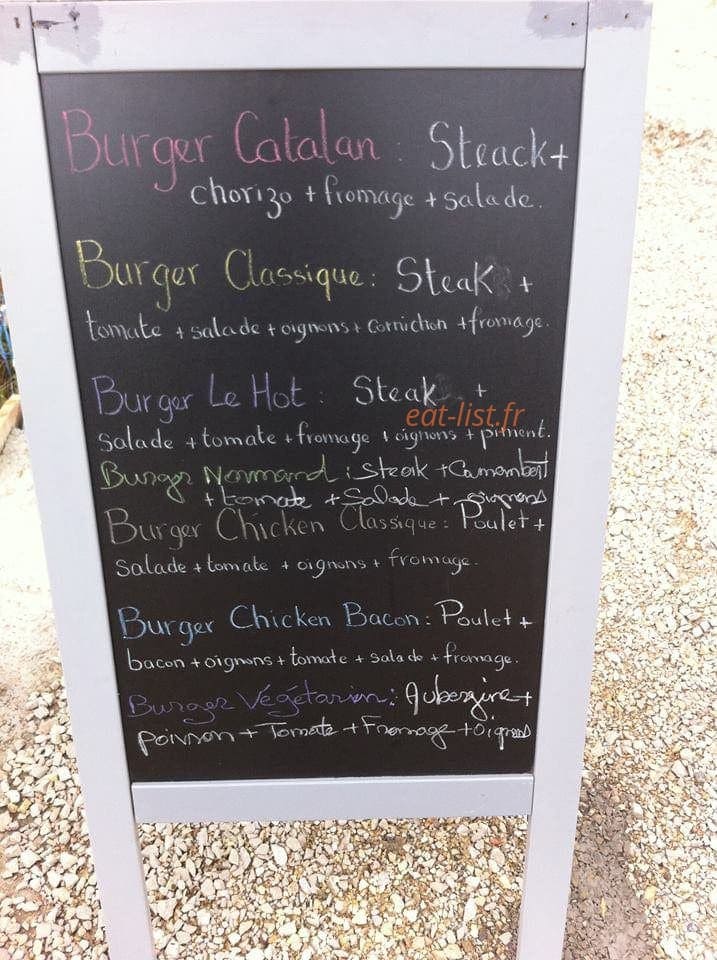 Burger Catalan : Steack +
chorizo + fromage + salade.
Burger Classique : Steak +
tomate + salade + oignons + cornichon + fromage.
Burger Le Hot : Steak +
eat-list.fr
salade + tomate + fromage + oignons + piment.
Burger Normand : Steak + Camembert
+ tomate + Salade + oignons
Burger Chicken Classique : Poulet +
salade + tomate + oignons + fromage.
Burger Chicken Bacon : Poulet +
bacon + oignons + tomate + salade + fromage.
Burger Végétarien : Aubergine +
poivron + Tomate + Fromage + Oignons